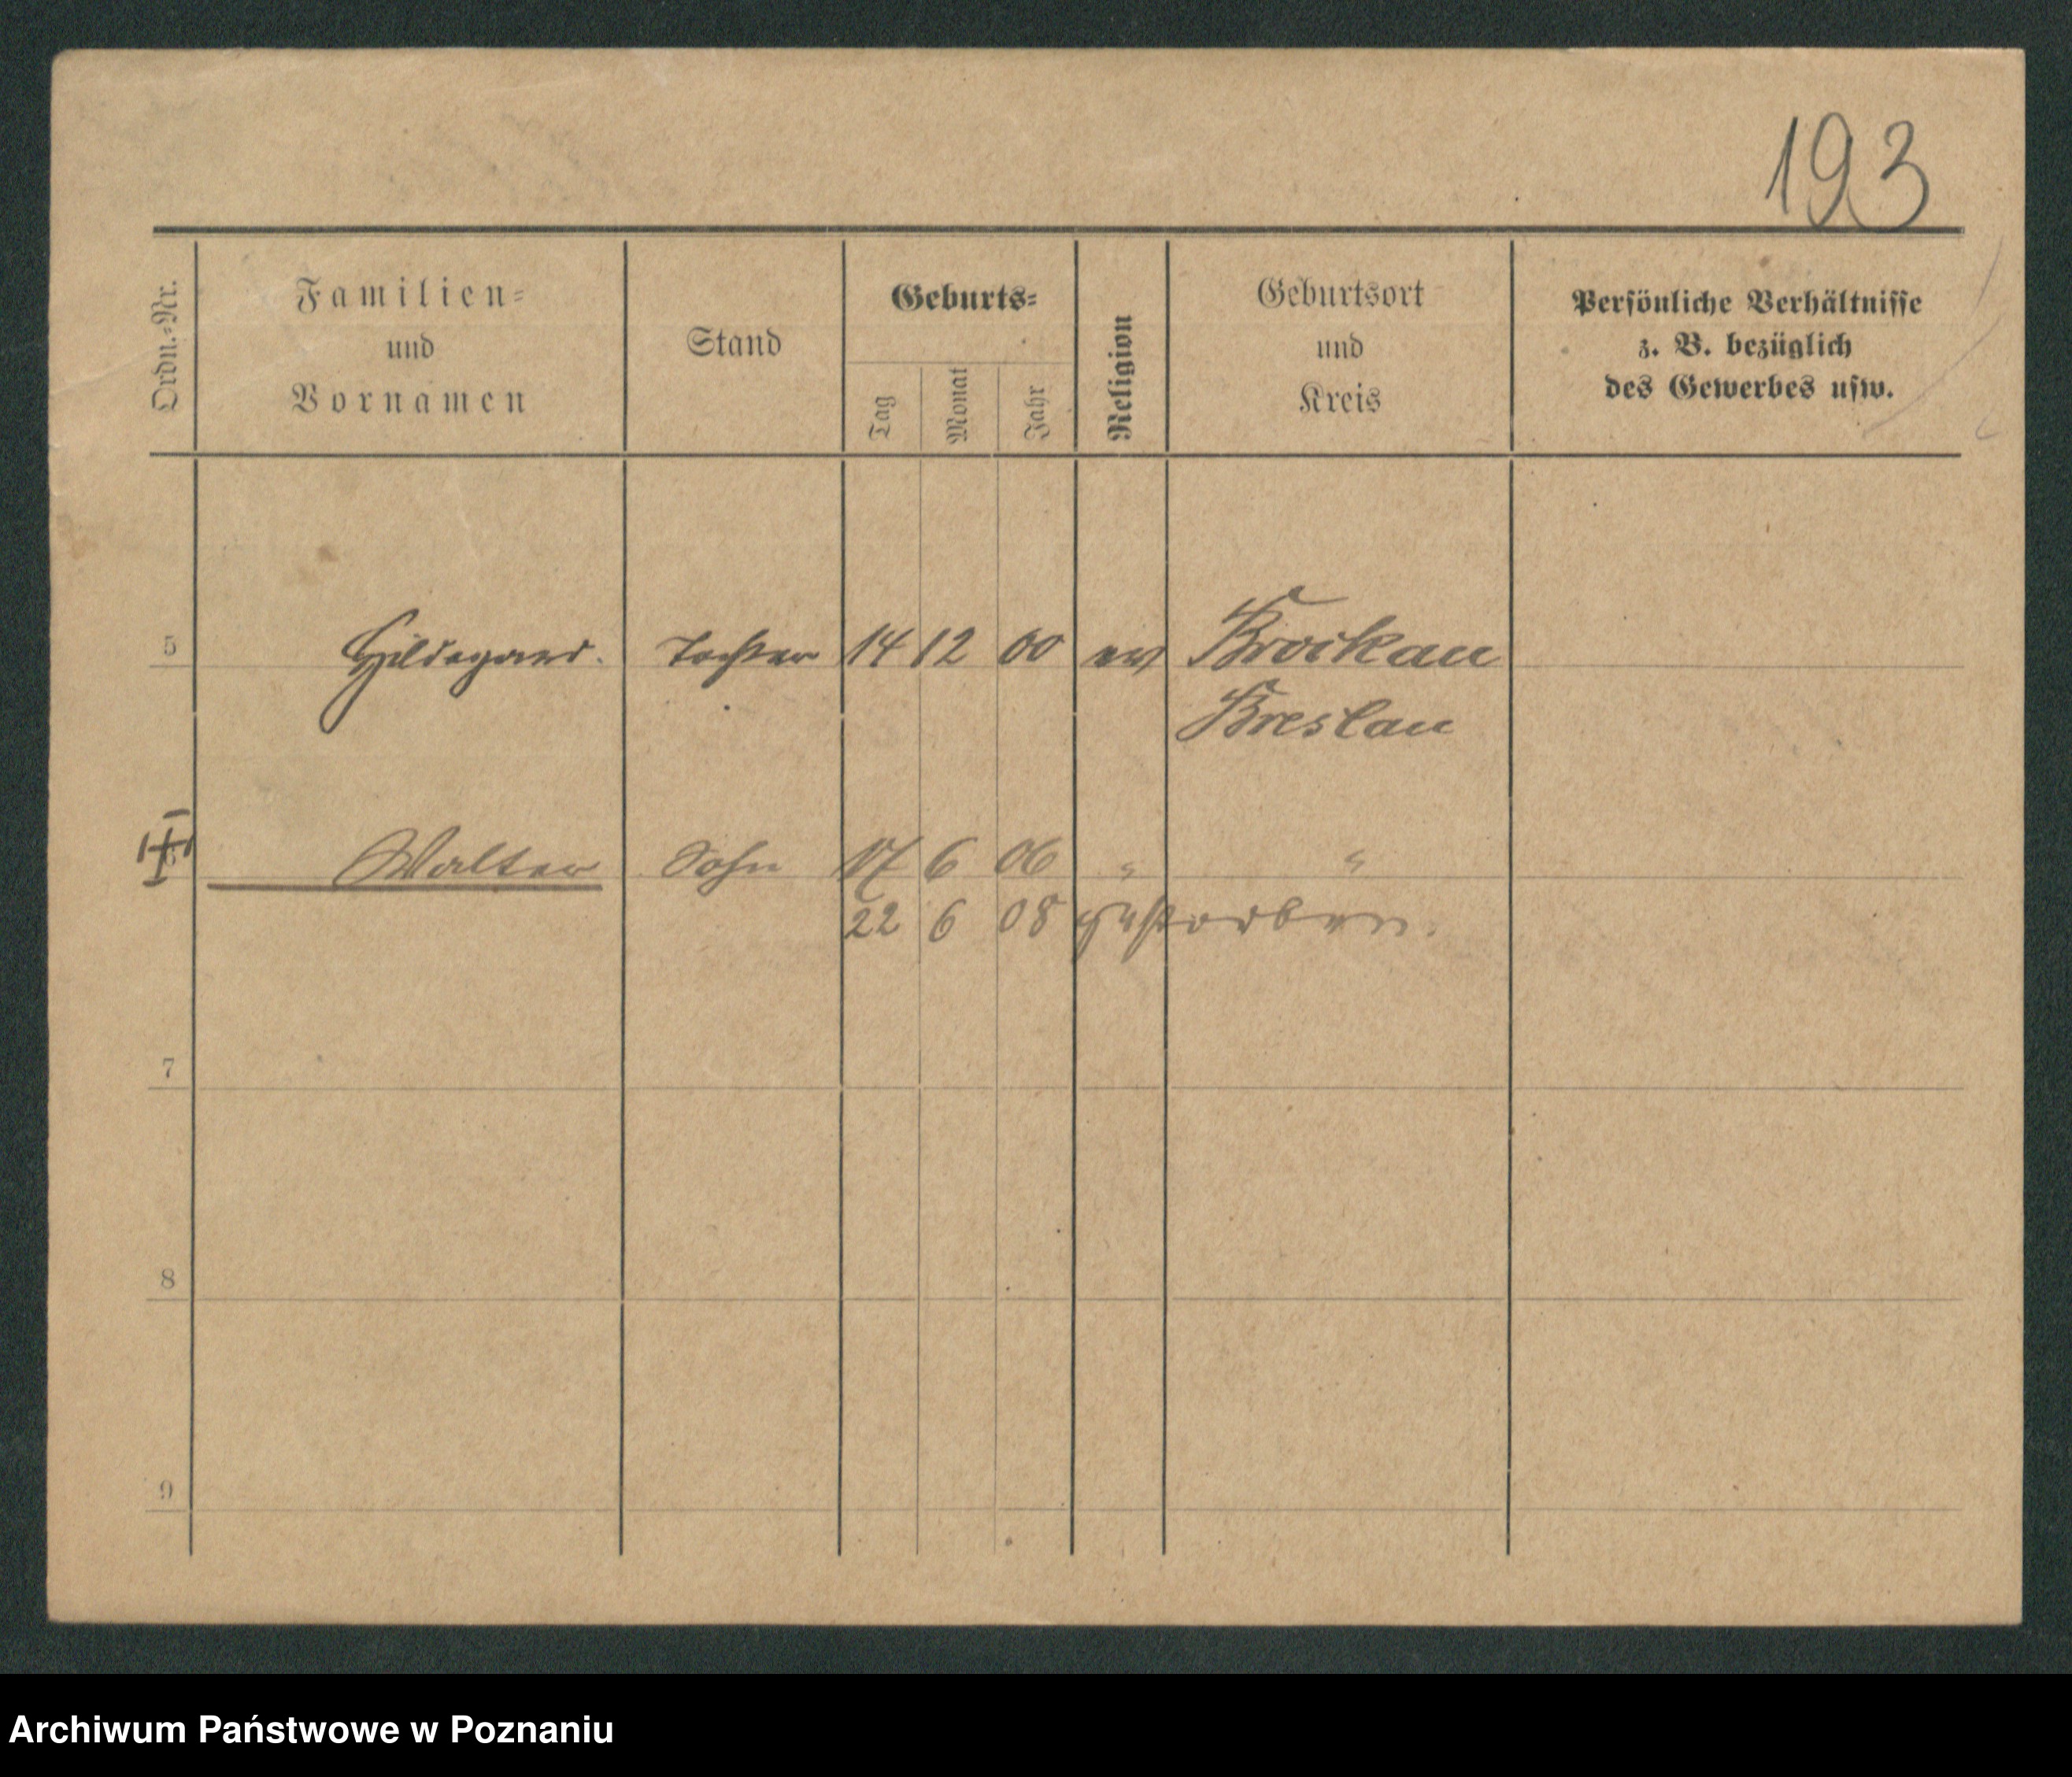 193
Ordn.-Nr.
Familien-
und
Vornamen
Stand
Geburts-
Tag
Monat
Jahr
Religion
Geburtsort
und
Kreis
Persönliche Verhältnisse
z. B. bezüglich
des Gewerbes usw.
5 Hildegard. Tochter 14 12 00 ev Brockau
Breslau
6 Walter Sohn 17 6 06 " "
22 6 08 gestorben.
7
8
9
Archiwum Państwowe w Poznaniu